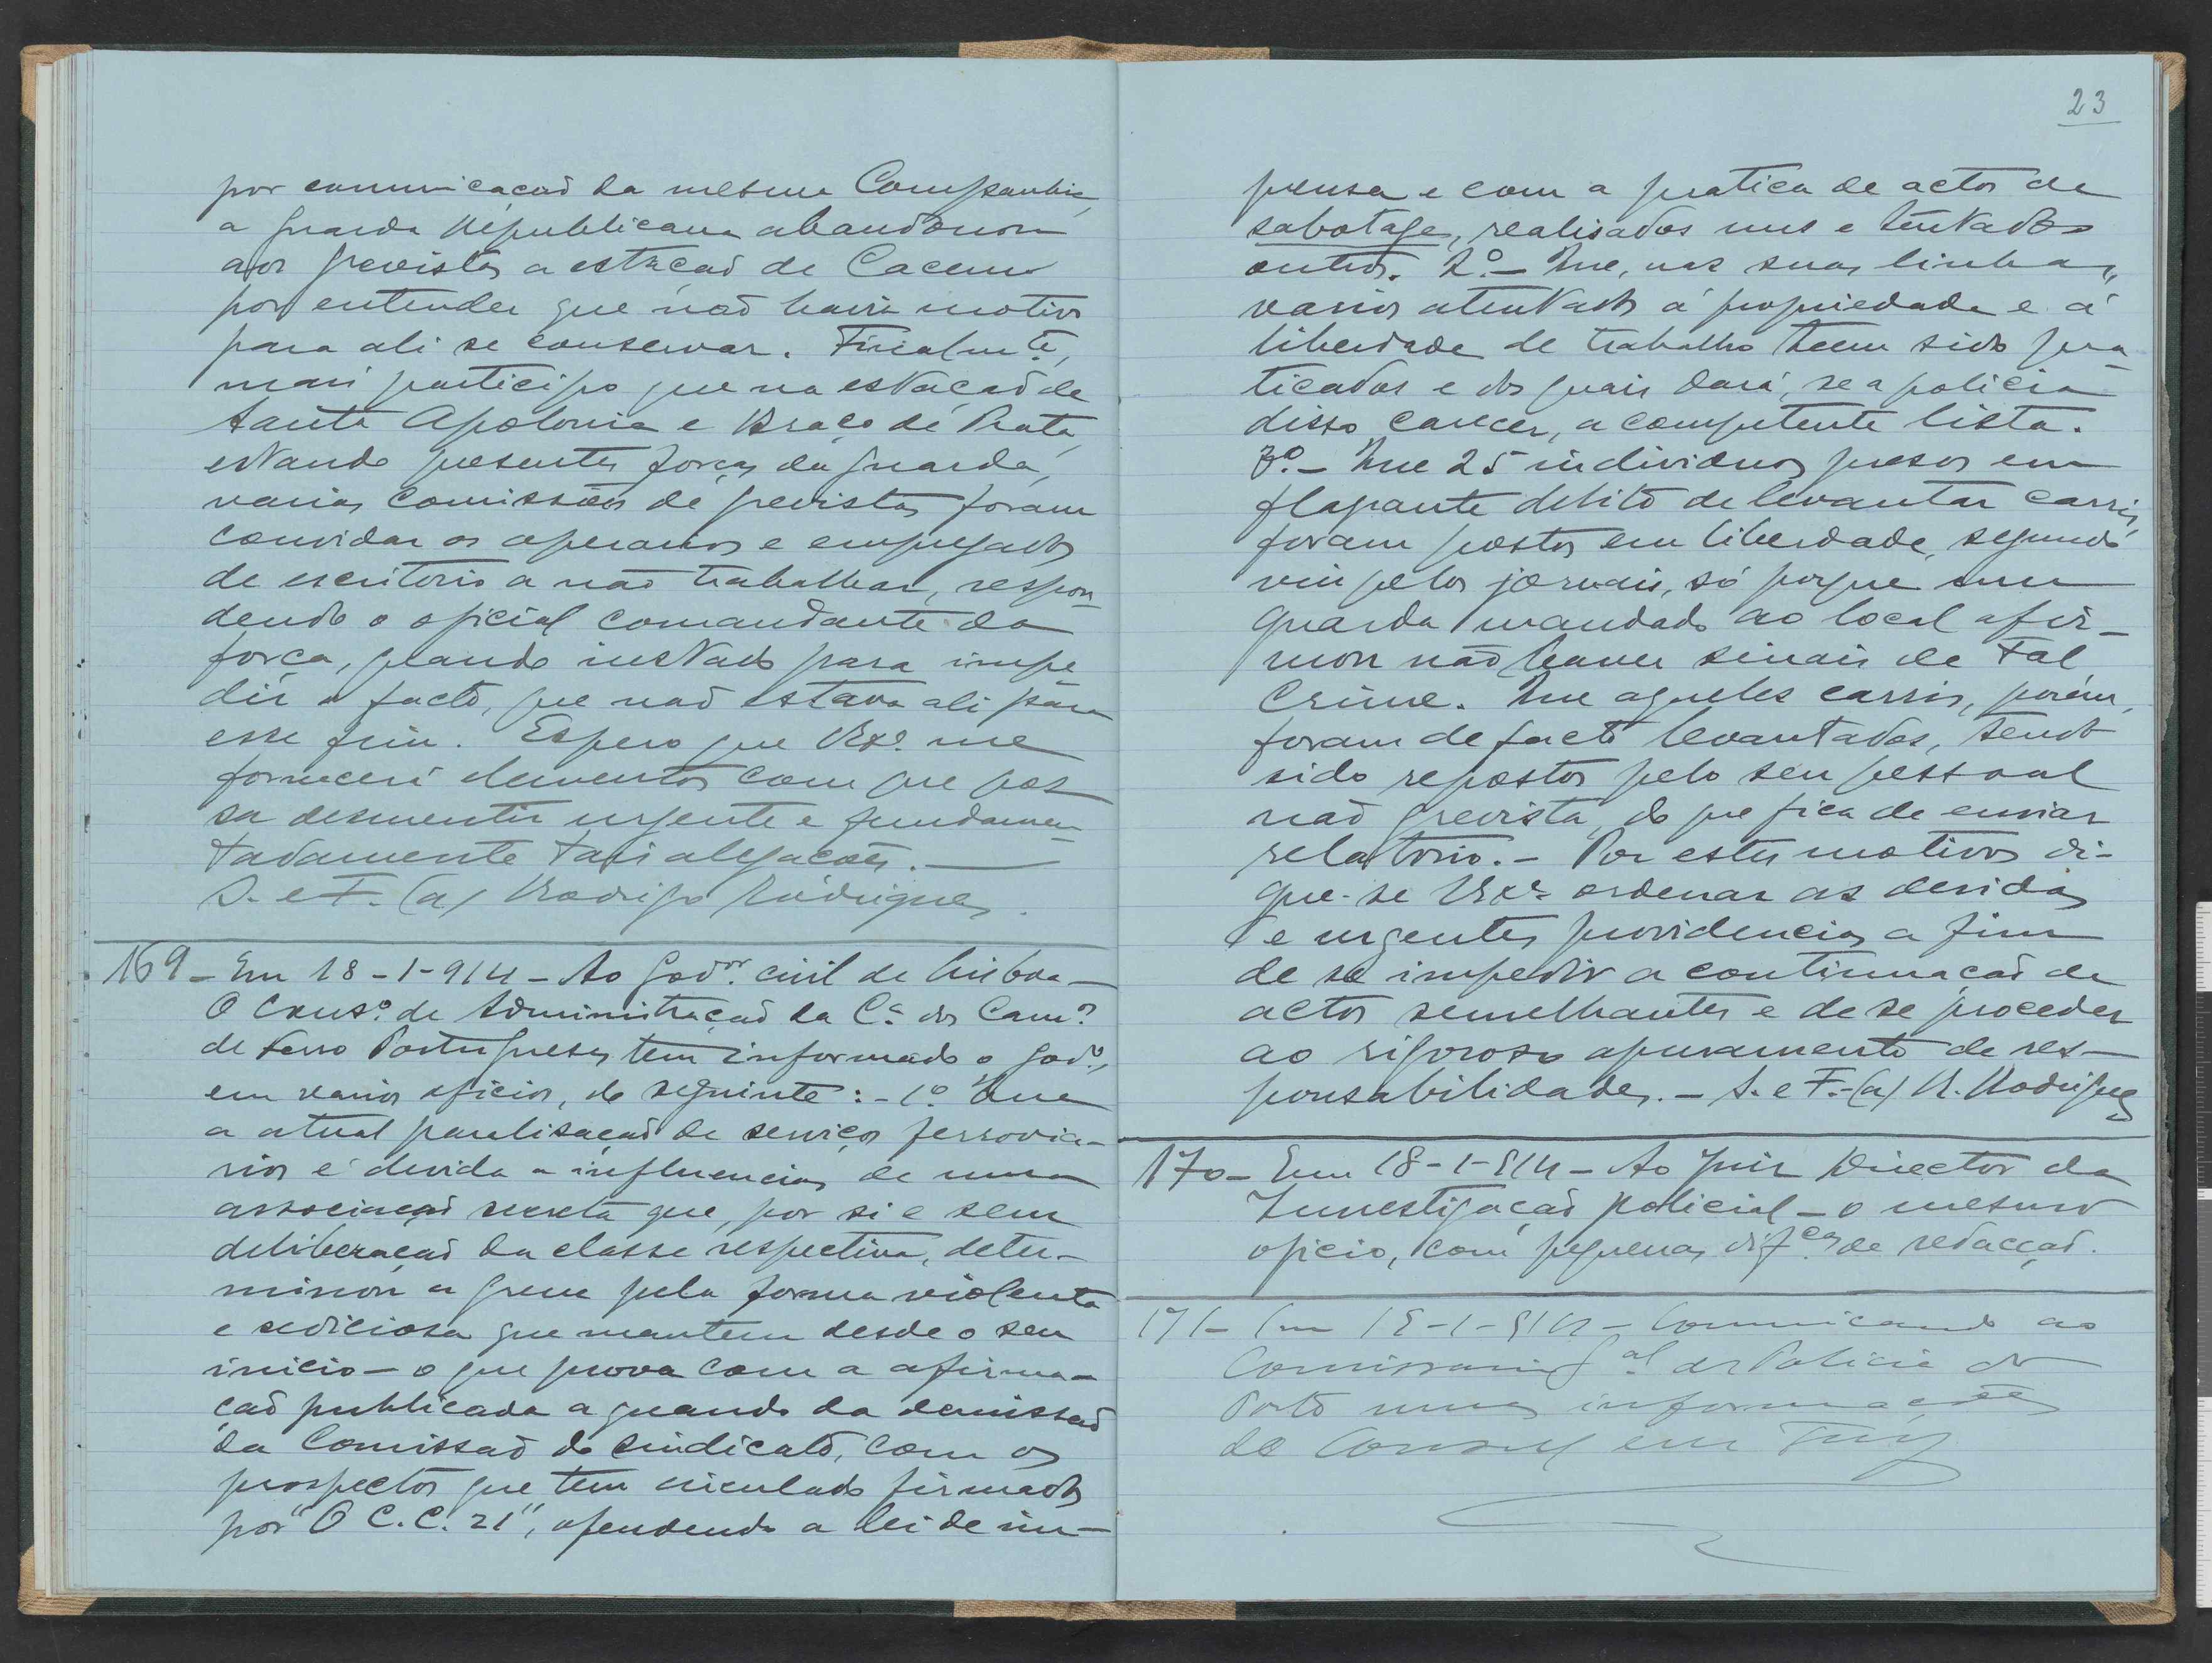 por comunicação da mesma Companhia,
a guarda republicana abandonou
aos grevistas a estação de Cacem
por entender que não havia motivo
para ali se conservar. Finalmte,
mais participo que na estação de
Santa Apolonia e Braço de Prata,
estando presentes forças da guarda,
varias comissões de grevistas foram
convidar os operarios e empregados
de escritorio a não trabalhar, respon-
dendo o oficial comandante da
força, quando instado para impe-
dir o facto, que não estava ali para
esse fim. Espero que V.Exª. me
fornecerá elementos com que pos-
sa desmentir urgente e fundamen-
tadamente tais alegações.—
S. e F. (a) Rodrigo Rodrigues.
169 - Em 18-1-914 - Ao Govor. civil de Lisboa—
O Conso. de Administração da Cª dos Camos.
de Ferro Portugueses tem informado o govo.,
em varios oficios, do seguinte: - 1º Que
a atual paralisação de serviços ferrovia-
rios é devida a influencias de uma
associação secreta que, por si e sem
deliberação da classe respectiva, deter-
minou a greve pela forma violenta
e sediciosa que mantem desde o seu
inicio — o que prova com a afirma-
ção publicada a quando da demissão
da Comissão do Sindicato, com os
prospectos que tem circulado firmados
por "O C.C. 21", ofendendo a lei de im-
23
prensa e com a pratica de actos de
sabotage, realisados uns e tentados
outros. 2º- Que, nas suas linhas,
varios atentados á propriedade e á
liberdade de trabalho teem sido pra-
ticados e dos quais dará, se a policia
disso carecer, a competente lista.
3º- Que 25 individuos presos em
flagrante delito de levantar carris,
foram postos em liberdade, segundo
viu pelos jornais, só porque um
guarda mandado ao local afir-
mou não haver sinais de tal
crime. Que aqueles carris, porém,
foram de facto levantados, tendo
sido repostos pelo seu pessoal
não grevista, do que fica de enviar
relatorio. - Por estes motivos di-
gue-se V.Exª ordenar as devidas
e urgentes providencias a fim
de se impedir a continuação de
actos semelhantes e de se proceder
ao rigoroso apuramento de res-
ponsabilidades. - S. e F.-(a) R. Rodrigues
170 - Em 18-1-914 - Ao Juiz Director da
Investigação policial - o mesmo
oficio, com pequenas difças de redacção.
171 - Em 18-1-914 - Comunicando ao
Comissario Gal. da Policia do
Porto umas informações
do Consul em Tuy